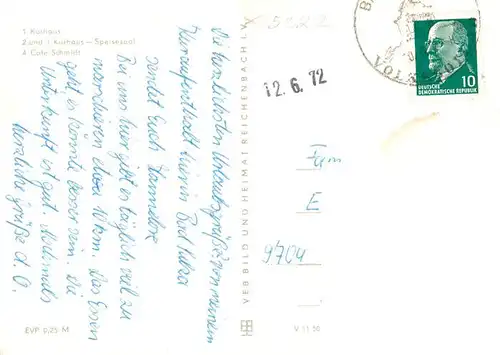 1 Kurhaus
2 und 3 Kurhaus – Speisesaal
4 Café Schmidt
Die herzlichsten Urlaubsgrüße von meinem
Kuraufenthalt hier in Bad
sendet Euch Hannelore
Bei uns hier gibt es täglich viel zu
marschieren. Das Essen
geht es könnte besser sein. Die
Unterkunft ist gut. Nochmals
herzliche Grüße d. O.
EVP 0,25 M
VEB BILD UND HEIMAT REICHENBACH I. V.
V 11 50
12. 6. 72
DEUTSCHE
DEMOKRATISCHE REPUBLIK
10
Fam
E
9704